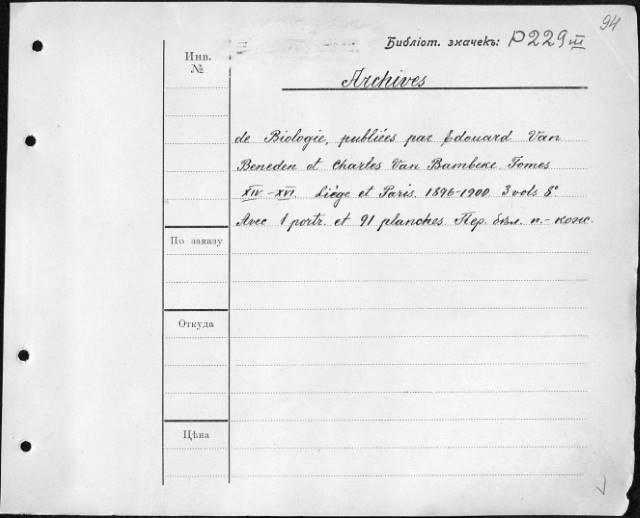 94
Библіот. значекъ: P229 III
Инв.
№
Archives
de Biologie, publiées par Edouard Van
Beneden et Charles Van Bambeke. Tomes
XIV–XVI. Liége et Paris. 1896-1900 3 vols 8°
Avec 1 portr. et 91 planches. Пер. бѣл. п.-кож.
По заказу
Откуда
Цѣна